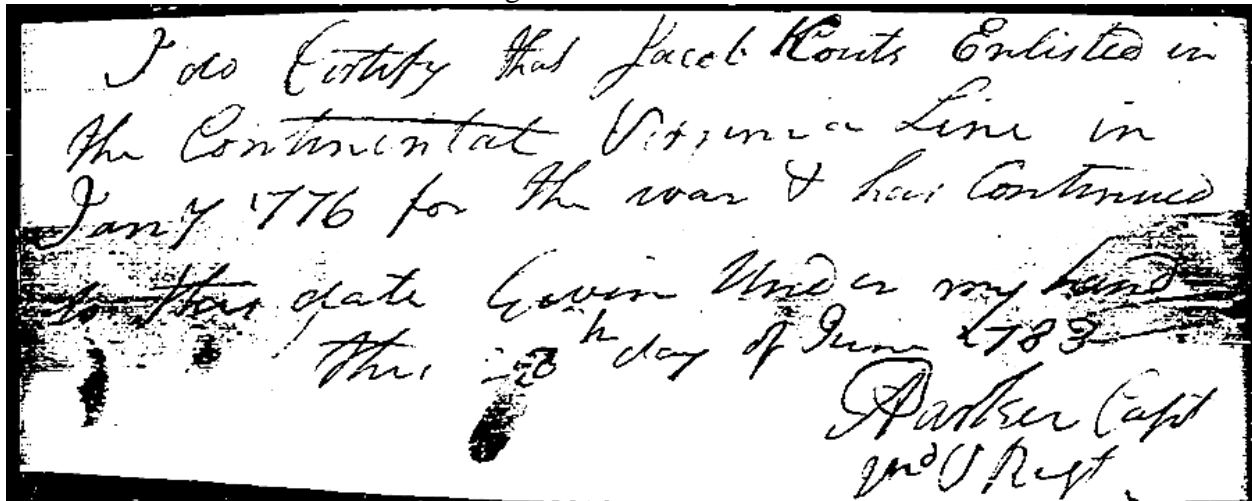 I do Certify that Jacob Kouts Enlisted in
the Continental Virginia Line in
Jany 1776 for the war & has Continued
to this date Given Under my hand
this h day of June 1783
Parker Capt
2nd V Regt